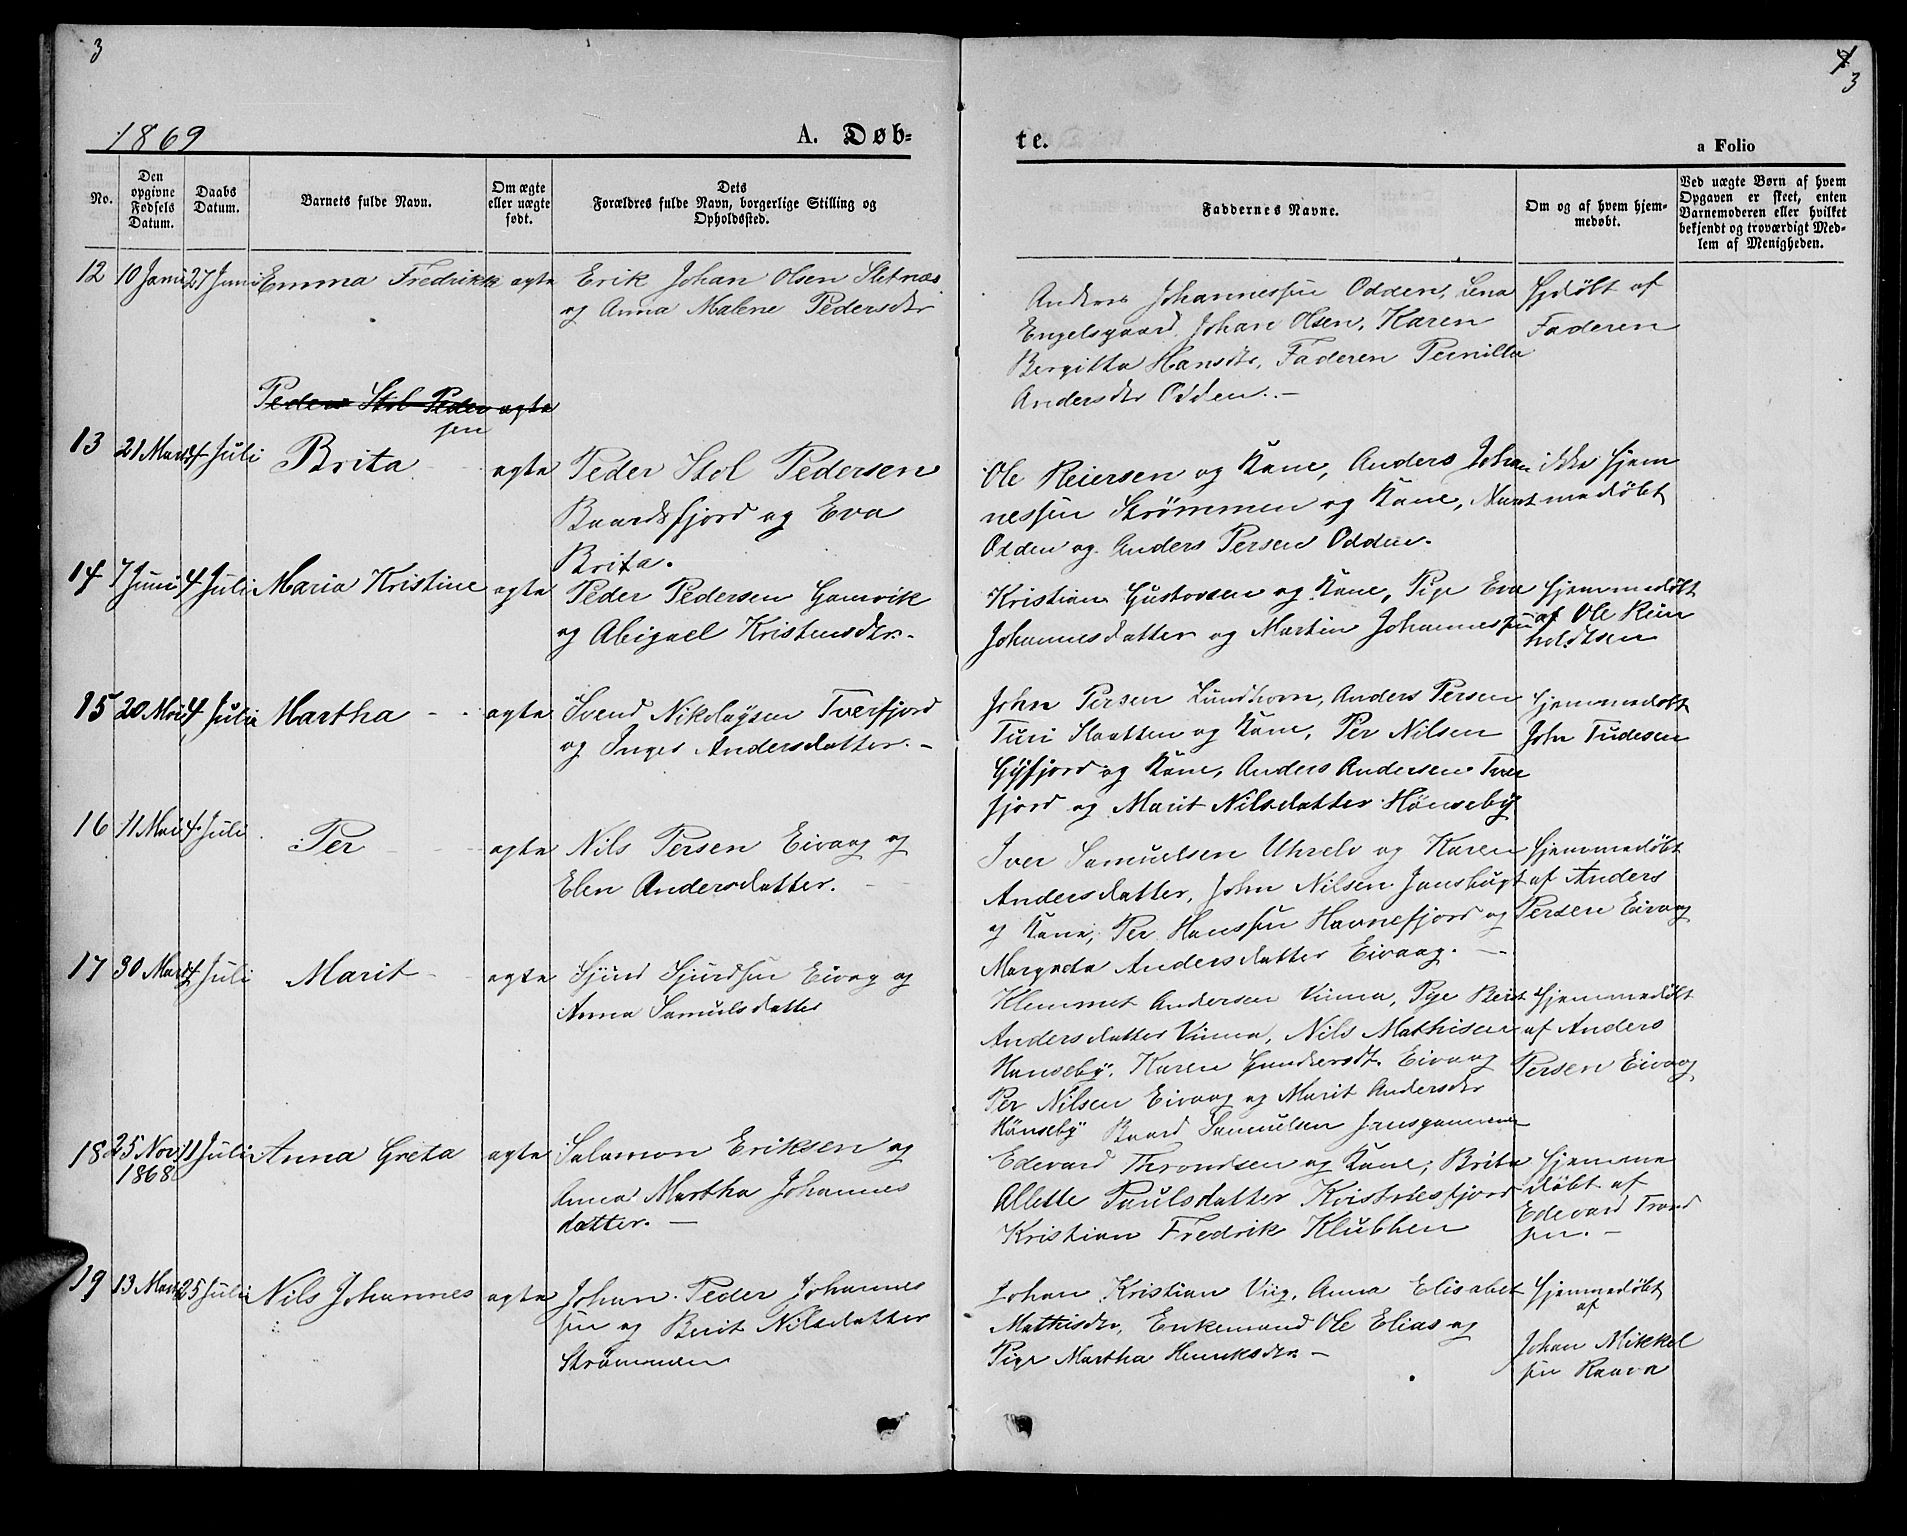 3
1869
A. Døb-
No.
Den opgivne Fødsels Datum.
Daabs Datum.
Barnets fulde Navn.
Om ægte eller uægte født.
Dets Forældres fulde Navn, borgerlige Stilling og Opholdssted.
12 10 Juni 27 Juni Emma Fredrikke ægte Erik Johan Olsen Sletnæs
og Anna Malene Pedersdtr
Peder Stol Peder ægte
sen
13 21 Marts 4 Juli Brita ægte Peder Stol Pedersen
Baardsfjord og Eva
Brita.
14 7 Juni 4 Juli Maria Kristine ægte Peder Pedersen Gamvik
og Abigael Kristensdtr.
15 20 Mai 4 Juli Martha ægte Svend Nikolaysen Tverfjord
og Inger Andersdatter.
16 11 Mai 4 Juli Per ægte Nils Persen Eivaag og
Elen Andersdatter.
17 30 Marts 4 Juli Marit ægte Sjurd Sjurdsen Eivaag og
Anna Samulsdatter
18 25 Nov 11 Juli Anna Greta ægte Salamon Eriksen og
1868
Anna Martha Johannes
datter.
19 13 Marts 25 Juli Nils Johannes ægte Johan Peder Johannes
sen og Berit Nilsdatter
Strømmen
3
te.
a Folio
Faddernes Navne.
Om og af hvem hjemmedøbt.
Ved uægte Børn af hvem Opgaven er skeet, enten Barnemoderen eller hvilket bekjendt og troværdigt Medlem af Menigheden.
Anders Johannessen Odden, Lena Hjdøbt af
Engelsgaard, Johan Olsen, Karen Faderen
Bergitta Hansdtr, Faderen Pernilla
Andersdtr Odden.
Ole Reiersen og Kone, Anders Johan ikke hjem
nessen Strømmen og Kone, Marit medøbt
Odden og Anders Persen Odden.
Kristian Gustavsen og Kone, Pige Eva Hjemmedøbt
Johannesdatter og Martin Johannessen af Ole Rein
holdtsen
John Persen Lundhavn, Anders Persen Hjemmedøbt
Turi Slaatten og Kone, Per Nilsen John Tudesen
Gyfjord og Kone, Anders Andersen Tver
fjord og Marit Nilsdatter Hønseby
Iver Samuelsen Uhrelv og Karen Hjemmedøbt
Andersdatter, John Nilsen Jansbugt af Anders
og Kone, Per Hanssen Havnefjord og Persen Eivaag
Margreta Andersdatter Eivaag.
Klemmet Andersen Vinna, Pige Berit Hjemmedøbt
Andersdatter Vinna, Nils Mathisen af Anders
Hønseby, Karen Gundersdt. Eivaag Persen Eivaag
Per Nilsen Eivaag og Marit Andersdtr
Hønseby Baard Samulsen Jansgammen
Edevard Throndsen og Kone, Brita Hjemme
Allette Paulsdatter Kvistnesfjord døbt af
Kristian Fredrik Klubben Edevard Trond
sen.
Johan Kristian Viig, Anna Elisabet Hjemmedøbt
af
Mathisdtr, Enkemand Ole Elias og Johan Mikkel
Pige Martha Henriksdtr. sen Raava